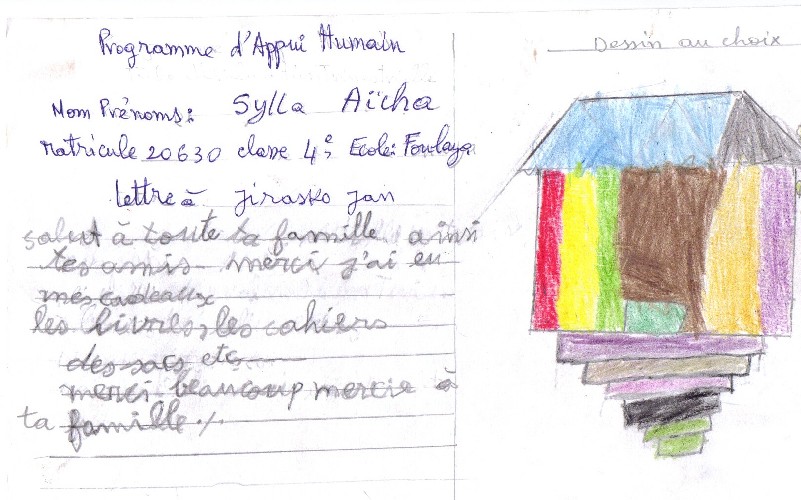 Programme d'Appui Humain
Dessin au choix
Nom Prénoms: Sylla Aïcha
Matricule 20630 classe 4e Ecole: Foulaya
lettre à Jirasko Jan
salut à toute ta famille ainsi
tes amis merci j'ai eu
mes cadeaux
les livres, les cahiers
des sacs etc
merci beaucoup mercie à
ta famille ./.